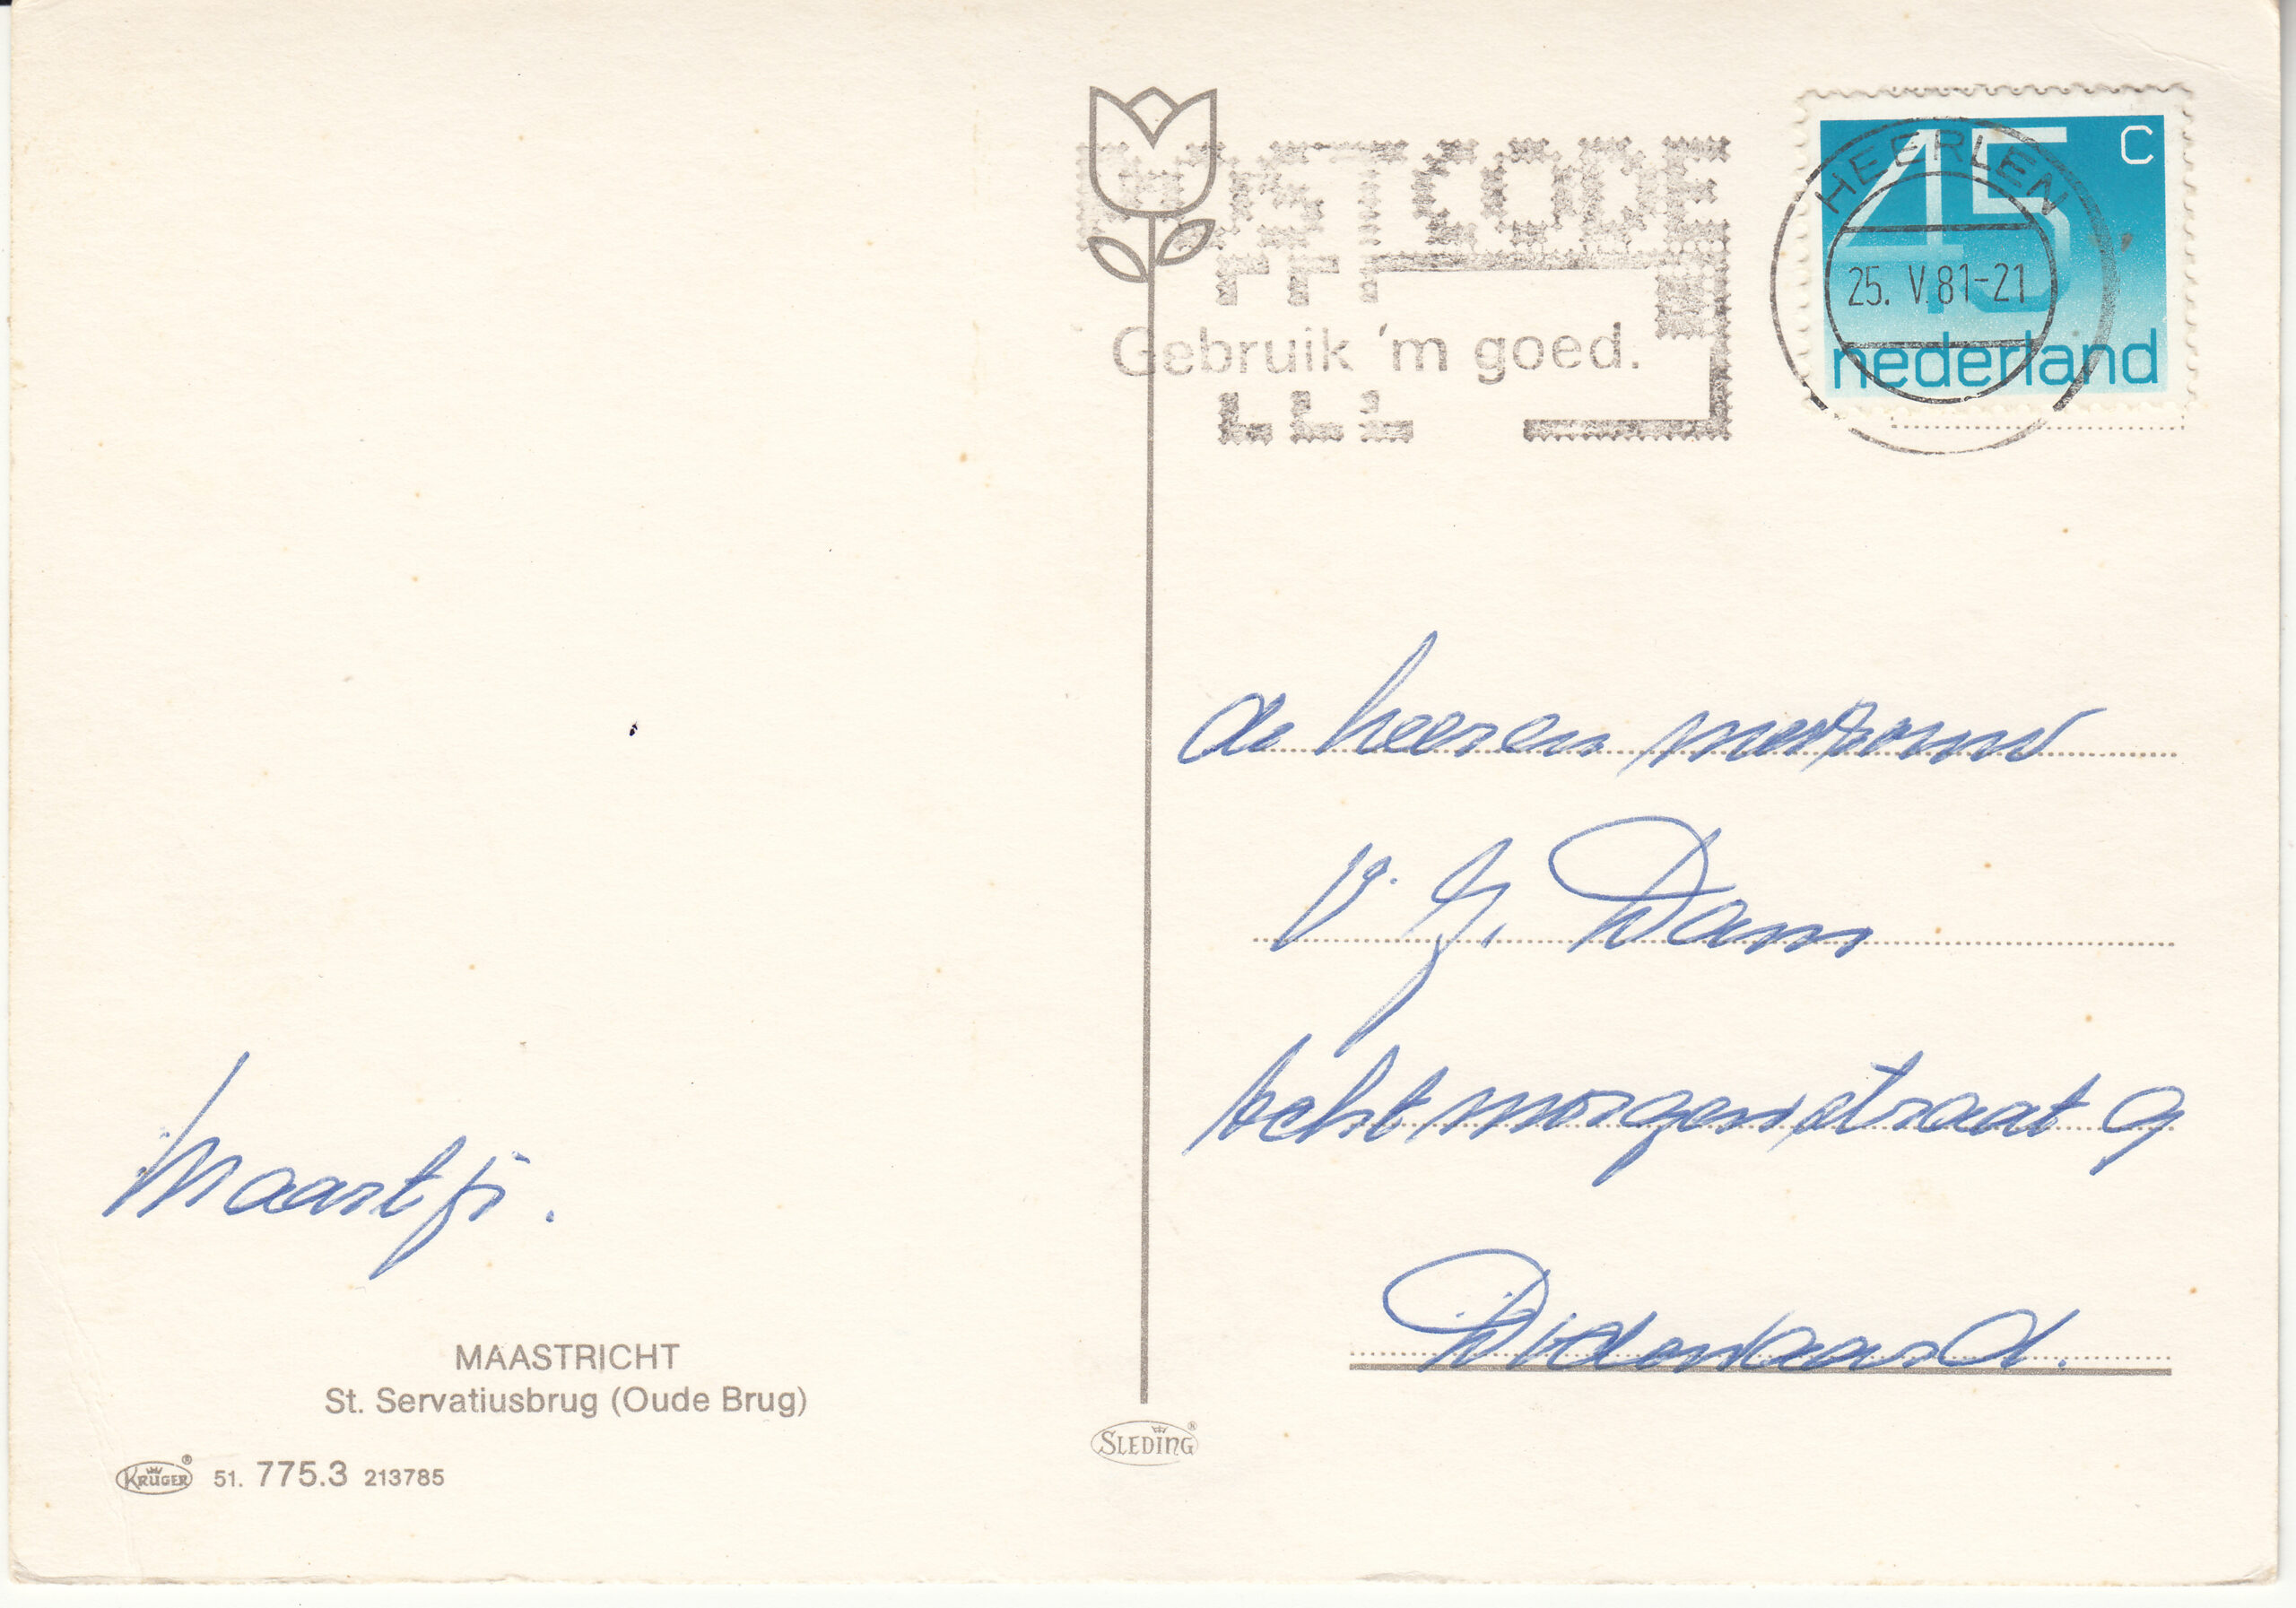 POSTCODE
Gebruik 'm goed.
45 C
nederland
HEERLEN
25. V. 81-21
de heer en mevrouw
v. J. Dam
Achtmorgenstraat 9
Maartje.
MAASTRICHT
St. Servatiusbrug (Oude Brug)
KRÜGER 51. 775.3 213785
SLEDING